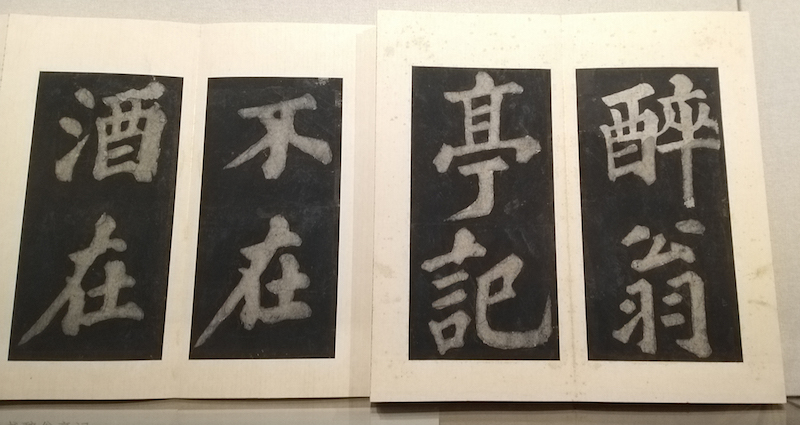 醉翁
亭記
不在
酒在